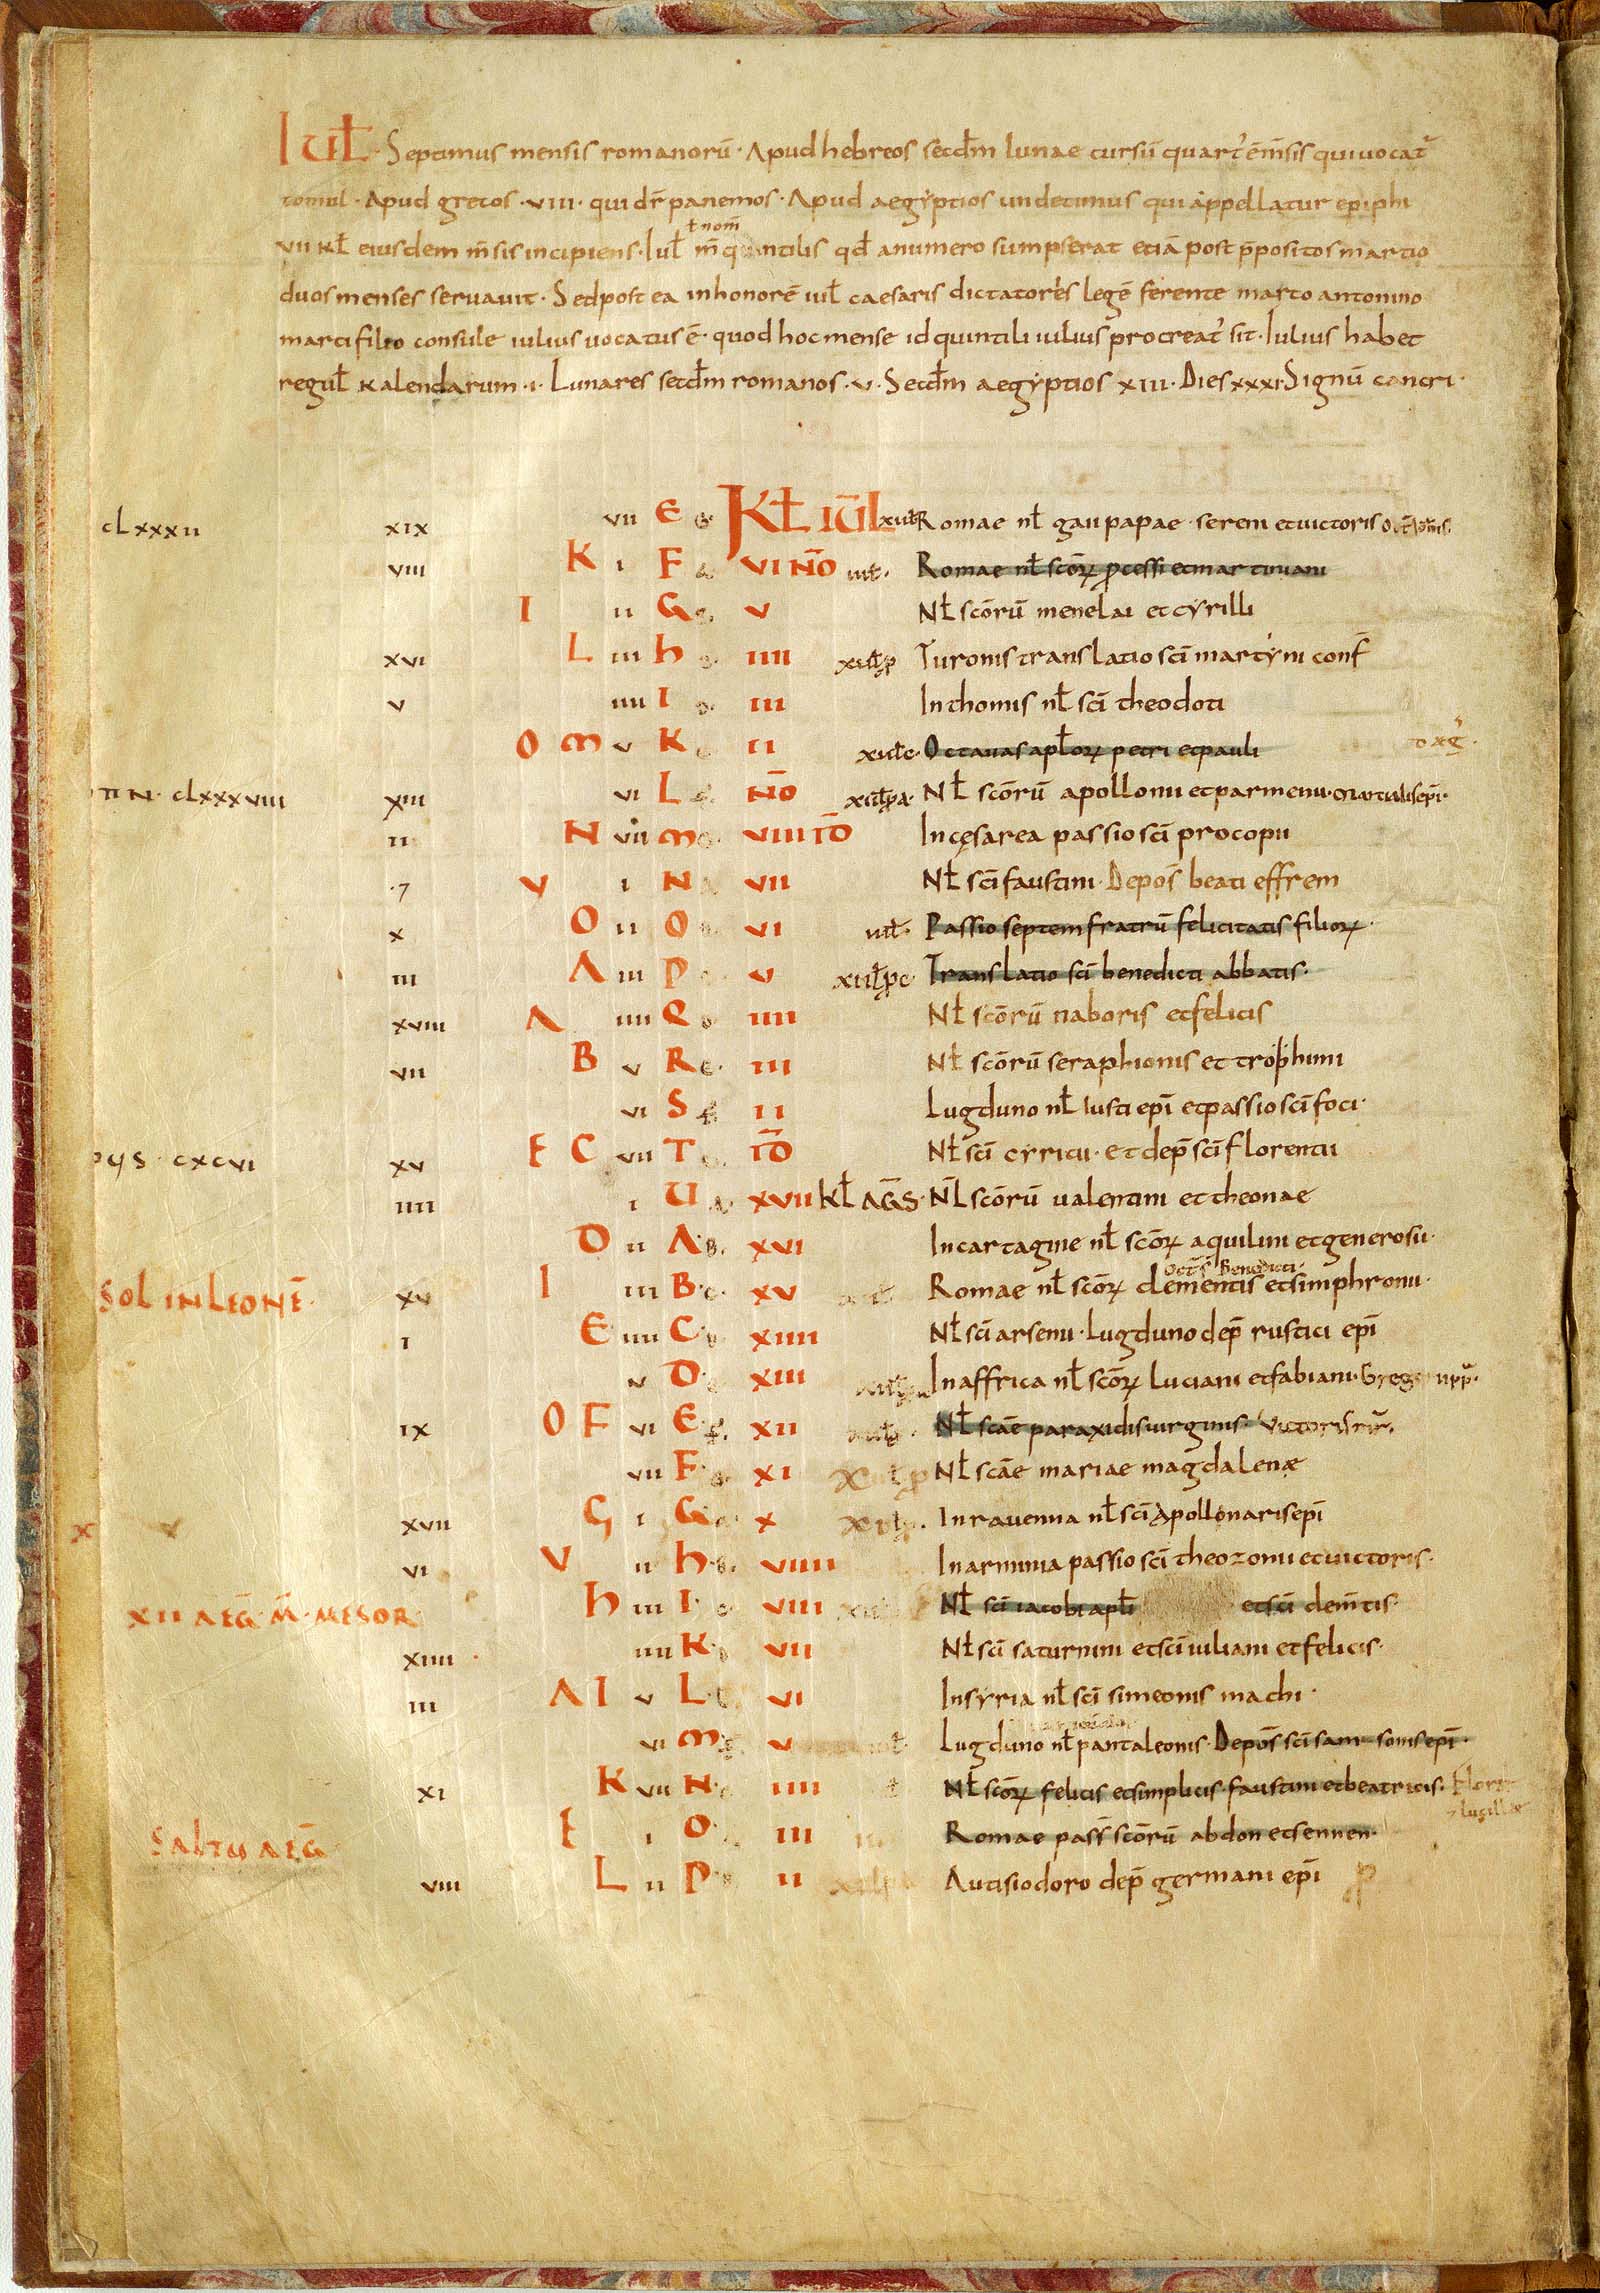 IUƚ · Septimus mensis romanorū · Apud hebreos secdm̄ lunae cursū quart' ē m̄sis qui uocat'
tomul · Apud grecos · VIII · qui dr̄ panemos · Apud aegyptios undecimus qui appellatur epiphi
ƚ nom̄
VII kƚ eiusdem m̄sis incipiens · Iuƚ m̄ quintilis qđ a numero sumpserat etiā post p̄positos martio
duos menses seruauit · Sed post ea in honorē iuƚ caesaris dictatoris legē ferente marco antonino
marci filio consule iulius uocatus ē · quod hoc mense id quintili iulius procreat' sit · Iulius habet
reguƚ kalendarum · I · Lunares secdm̄ romanos · V · Secdm̄ aegyptios XIII · Dies XXXI · Signū cancri ·
CLXXXII XIX VII E KƚIŪL Romae nƚ gaii papae · sereni et uictoris
VIII K I F VI NŌ Romae nƚ scōꝝ pcessi et martiniani
I II G V Nƚ scōrū menelai et cyrilli
XVI L III h IIII Turonis translatio scī martyni conf̄
V IIII I III In thomis nƚ scī theodoti
O M V K II Octauas apƚoꝝ petri et pauli
N · CLXXXVIII XIII VI L NŌ Nƚ scōrū apollonii et parmenii · marcialis ep̄i ·
II N VII M VIII ID̄ In cęsarea passio scī procopii
V I N VII Nƚ scī faustini · Depoš beati effrem
X O II O VI Passio septem fratrū felicitatis filioꝝ ·
III A III P V Translatio scī benedicti abbatis ·
XVIII A IIII Q IIII Nƚ scōrū naboris et felicis
VII B V R III Nƚ scōrū seraphionis et trophimi
VI S II Lugduno nƚ iusti ep̄i et passio scī foci ·
CXCVI XV E C VII T ID̄ Nƚ scī cyrici · et dep̄ scī florentii
IIII I U XVII Kƚ AGS · Nƚ scōrū ualentini et theonae
D II A XVI In cartagine nƚ scōꝝ aquilini et generosii ·
Oct̄ s̄ Benedicti ·
SOL IN LEONĒ · XV I III B XV Romae nƚ scōꝝ clementis et simphronii ·
I E IIII C XIIII Nƚ scī arsenii · Lugduno dep̄ rustici ep̄i
V D XIII In affrica nƚ scōꝝ Luciani et fabiani ·
IX O F VI E XII Nƚ scāe paraxidis uirginis · Victoris
VII F XI Nƚ scāe mariae magdalenæ
XVII G I G X In rauenna nƚ scī Apollonaris ep̄i
VI V II h VIIII In arminia passio scī theozonii et uictoris ·
XII AEG · M̄ · MESOR h III I VIII Nƚ scī iacobi apƚi et scī clem̄tis
XIIII IIII K VII Nƚ scī saturnini et scī iuliani et felicis ·
III A I V L VI In syria nƚ scī simeonis machi ·
VI M V Lugduno nƚ pantaleonis · Depoš scī samsonis ep̄i ·
XI K VII N IIII Nƚ scōꝝ felicis et simplicis · faustini et beatricis ·
SALTU AEG E I O III Romae pasš scōrū abdon et sennen ·
VIII L II P II Autisiodoro dep̄ germani ep̄i